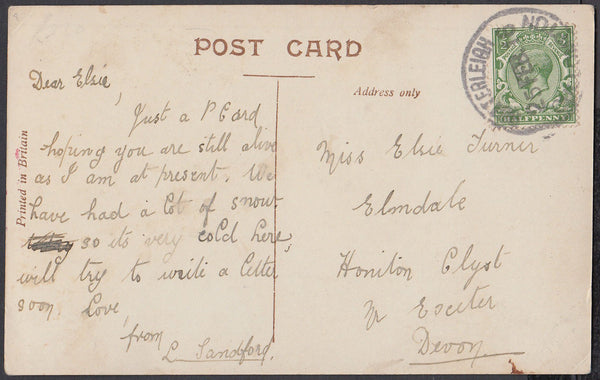 POST CARD
Dear Elsie,
Just a P Card
hoping you are still alive
as I am at present. We
have had a lot of snow
so its very cold here,
will try to write a letter
soon. Love,
from
L. Sandford.
Printed in Britain
Address only
Miss Elsie Turner
Elmdale
Honiton Clyst
Nr Exeter
Devon.
HALFPENNY